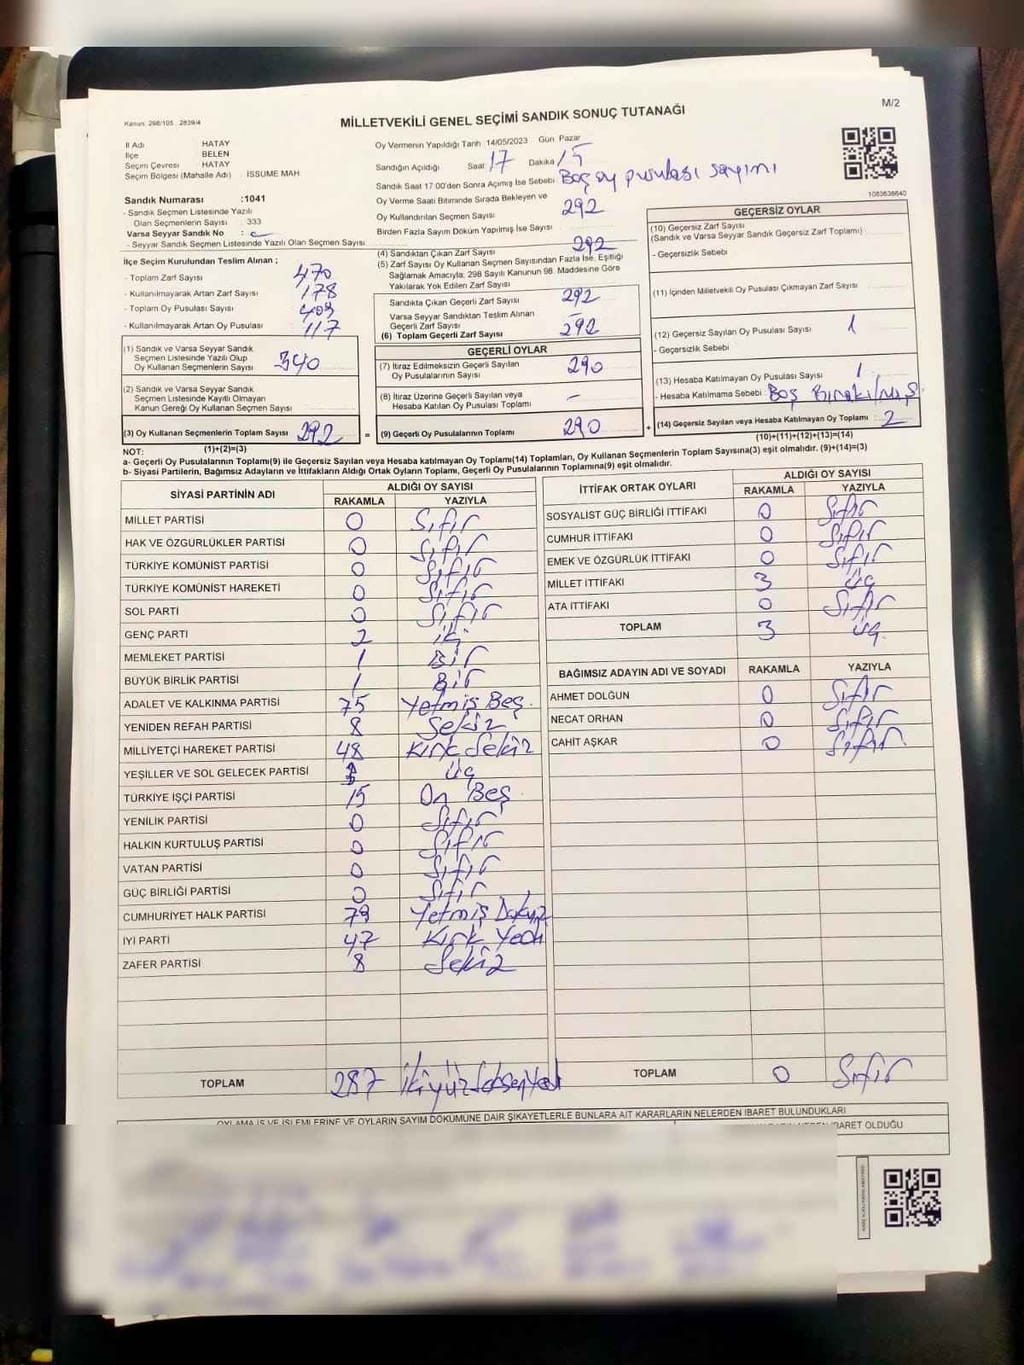 M/2
Kanun: 298/105 , 2839/4
MİLLETVEKİLİ GENEL SEÇİMİ SANDIK SONUÇ TUTANAĞI
İl Adı HATAY
İlçe BELEN
Seçim Çevresi HATAY
Seçim Bölgesi (Mahalle Adı) : ISSUME MAH
Sandık Numarası :1041
- Sandık Seçmen Listesinde Yazılı
Olan Seçmenlerin Sayısı : 333
Varsa Seyyar Sandık No :
- Seyyar Sandık Seçmen Listesinde Yazılı Olan Seçmen Sayısı
Oy Vermenin Yapıldığı Tarih 14/05/2023 Gün Pazar
Sandığın Açıldığı Saat 17 Dakika 15
Sandık Saat 17.00'den Sonra Açımış İse Sebebi Boş oy pusulası sayımı
Oy Verme Saati Bitiminde Sırada Bekleyen ve
Oy Kullandırılan Seçmen Sayısı 292
Birden Fazla Sayım Döküm Yapılmış İse Sayısı
1083636640
İlçe Seçim Kurulundan Teslim Alınan ;
- Toplam Zarf Sayısı 470
- Kullanılmayarak Artan Zarf Sayısı 178
- Toplam Oy Pusulası Sayısı 409
- Kullanılmayarak Artan Oy Pusulası 117
(1) Sandık ve Varsa Seyyar Sandık
Seçmen Listesinde Yazılı Olup
Oy Kullanan Seçmenlerin Sayısı 340
(2) Sandık ve Varsa Seyyar Sandık
Seçmen Listesinde Kayıtlı Olmayan
Kanun Gereği Oy Kullanan Seçmen Sayısı
(3) Oy Kullanan Seçmenlerin Toplam Sayısı 292
(1)+(2)=(3)
(4) Sandıktan Çıkan Zarf Sayısı 292
(5) Zarf Sayısı Oy Kullanan Seçmen Sayısından Fazla İse, Eşitliği
Sağlamak Amacıyla; 298 Sayılı Kanunun 98. Maddesine Göre
Yakılarak Yok Edilen Zarf Sayısı
Sandıkta Çıkan Geçerli Zarf Sayısı 292
Varsa Seyyar Sandıktan Teslim Alınan
Geçerli Zarf Sayısı –
(6) Toplam Geçerli Zarf Sayısı 292
GEÇERLİ OYLAR
(7) İtiraz Edilmeksizin Geçerli Sayılan
Oy Pusulalarının Sayısı 290
(8) İtiraz Üzerine Geçerli Sayılan veya
Hesaba Katılan Oy Pusulası Toplamı –
= (9) Geçerli Oy Pusulalarının Toplamı 290
GEÇERSİZ OYLAR
(10) Geçersiz Zarf Sayısı
(Sandık ve Varsa Seyyar Sandık Geçersiz Zarf Toplamı)
- Geçersizlik Sebebi
(11) İçinden Milletvekili Oy Pusulası Çıkmayan Zarf Sayısı
(12) Geçersiz Sayılan Oy Pusulası Sayısı 1
- Geçersizlik Sebebi
(13) Hesaba Katılmayan Oy Pusulası Sayısı 1
- Hesaba Katılmama Sebebi : Boş Bırakılmış
+ (14) Geçersiz Sayılan veya Hesaba Katılmayan Oy Toplamı : 2
(10)+(11)+(12)+(13)=(14)
NOT:
a- Geçerli Oy Pusulalarının Toplamı(9) ile Geçersiz Sayılan veya Hesaba katılmayan Oy Toplamı(14) Toplamları, Oy Kullanan Seçmenlerin Toplam Sayısına(3) eşit olmalıdır. (9)+(14)=(3)
b- Siyasi Partilerin, Bağımsız Adayların ve İttifakların Aldığı Ortak Oyların Toplamı, Geçerli Oy Pusulalarının Toplamına(9) eşit olmalıdır.
SİYASİ PARTİNİN ADI ALDIĞI OY SAYISI
RAKAMLA YAZIYLA
MİLLET PARTİSİ 0 Sıfır
HAK VE ÖZGÜRLÜKLER PARTİSİ 0 Sıfır
TÜRKİYE KOMÜNİST PARTİSİ 0 Sıfır
TÜRKİYE KOMÜNİST HAREKETİ 0 Sıfır
SOL PARTİ 0 Sıfır
GENÇ PARTİ 2 iki
MEMLEKET PARTİSİ 1 Bir
BÜYÜK BİRLİK PARTİSİ 1 Bir
ADALET VE KALKINMA PARTİSİ 75 Yetmiş Beş
YENİDEN REFAH PARTİSİ 8 Sekiz
MİLLİYETÇİ HAREKET PARTİSİ 48 Kırk Sekiz
YEŞİLLER VE SOL GELECEK PARTİSİ üç
TÜRKİYE İŞÇİ PARTİSİ 15 On Beş
YENİLİK PARTİSİ 0 Sıfır
HALKIN KURTULUŞ PARTİSİ 0 Sıfır
VATAN PARTİSİ 0 Sıfır
GÜÇ BİRLİĞİ PARTİSİ 0 Sıfır
CUMHURİYET HALK PARTİSİ 79 Yetmiş Dokuz
İYİ PARTİ 47 Kırk Yedi
ZAFER PARTİSİ 8 Sekiz
TOPLAM 287 ikiyüz Seksen Yedi
İTTİFAK ORTAK OYLARI ALDIĞI OY SAYISI
RAKAMLA YAZIYLA
SOSYALİST GÜÇ BİRLİĞİ İTTİFAKI 0 Sıfır
CUMHUR İTTİFAKI 0 Sıfır
EMEK VE ÖZGÜRLÜK İTTİFAKI 0 Sıfır
MİLLET İTTİFAKI 3 üç
ATA İTTİFAKI 0 Sıfır
TOPLAM 3 üç
BAĞIMSIZ ADAYIN ADI VE SOYADI RAKAMLA YAZIYLA
AHMET DOLĞUN 0 Sıfır
NECAT ORHAN 0 Sıfır
CAHİT AŞKAR 0 Sıfır
TOPLAM 0 Sıfır
OYLAMA İŞ VE İŞLEMLERİNE VE OYLARIN SAYIM DÖKÜMÜNE DAİR ŞİKAYETLERLE BUNLARA AİT KARARLARIN NELERDEN İBARET BULUNDUKLARI
İBARET OLDUĞU